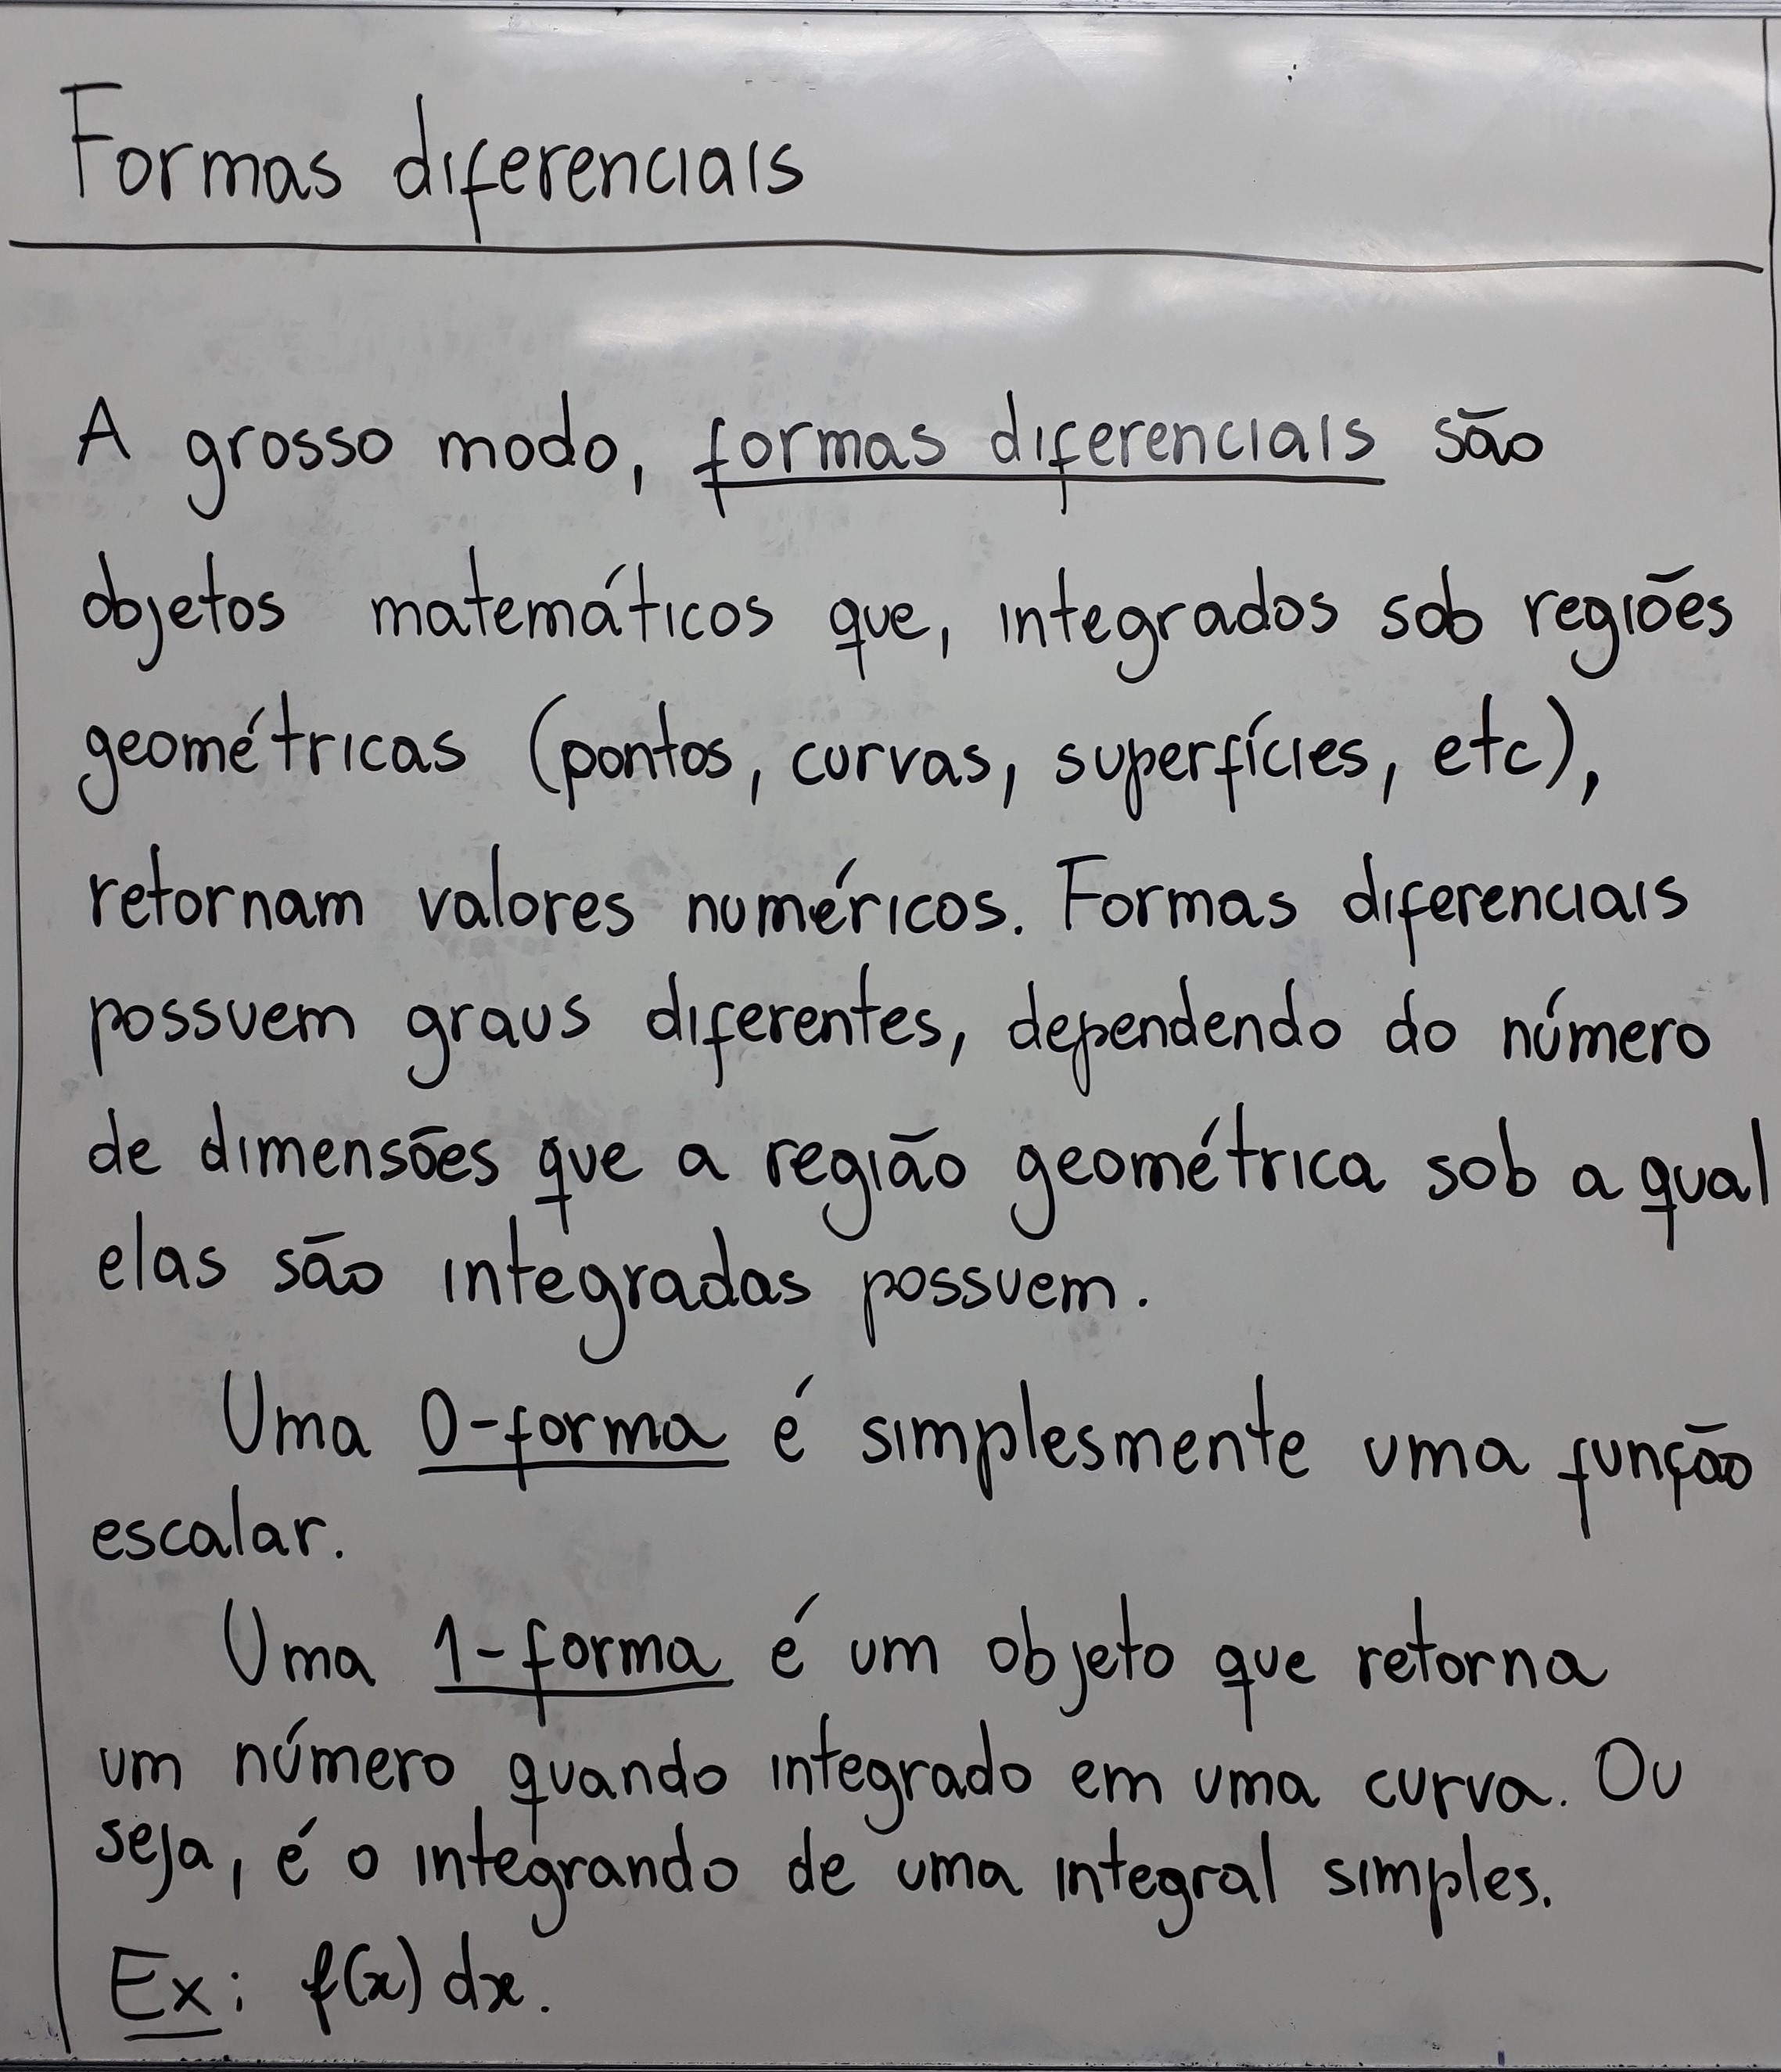 Formas diferenciais
A grosso modo, formas diferenciais são
objetos matemáticos que, integrados sob regiões
geométricas (pontos, curvas, superfícies, etc),
retornam valores numéricos. Formas diferenciais
possuem graus diferentes, dependendo do número
de dimensões que a região geométrica sob a qual
elas são integradas possuem.
Uma 0-forma é simplesmente uma função
escalar.
Uma 1-forma é um objeto que retorna
um número quando integrado em uma curva. Ou
seja, é o integrando de uma integral simples.
Ex: f(x) dx.